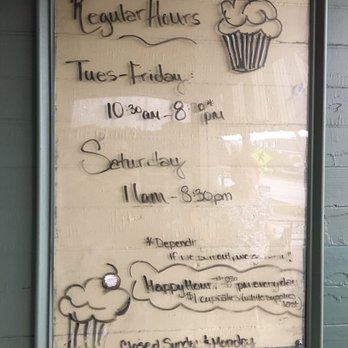 Regular Hours
Tues-Friday:
10:30am-8 pm
Saturday
11am-8:30pm
*Depend
If we
Happy Hour pm everyday
$1 cupcake while supplies
last
Closed Sunday & Monday